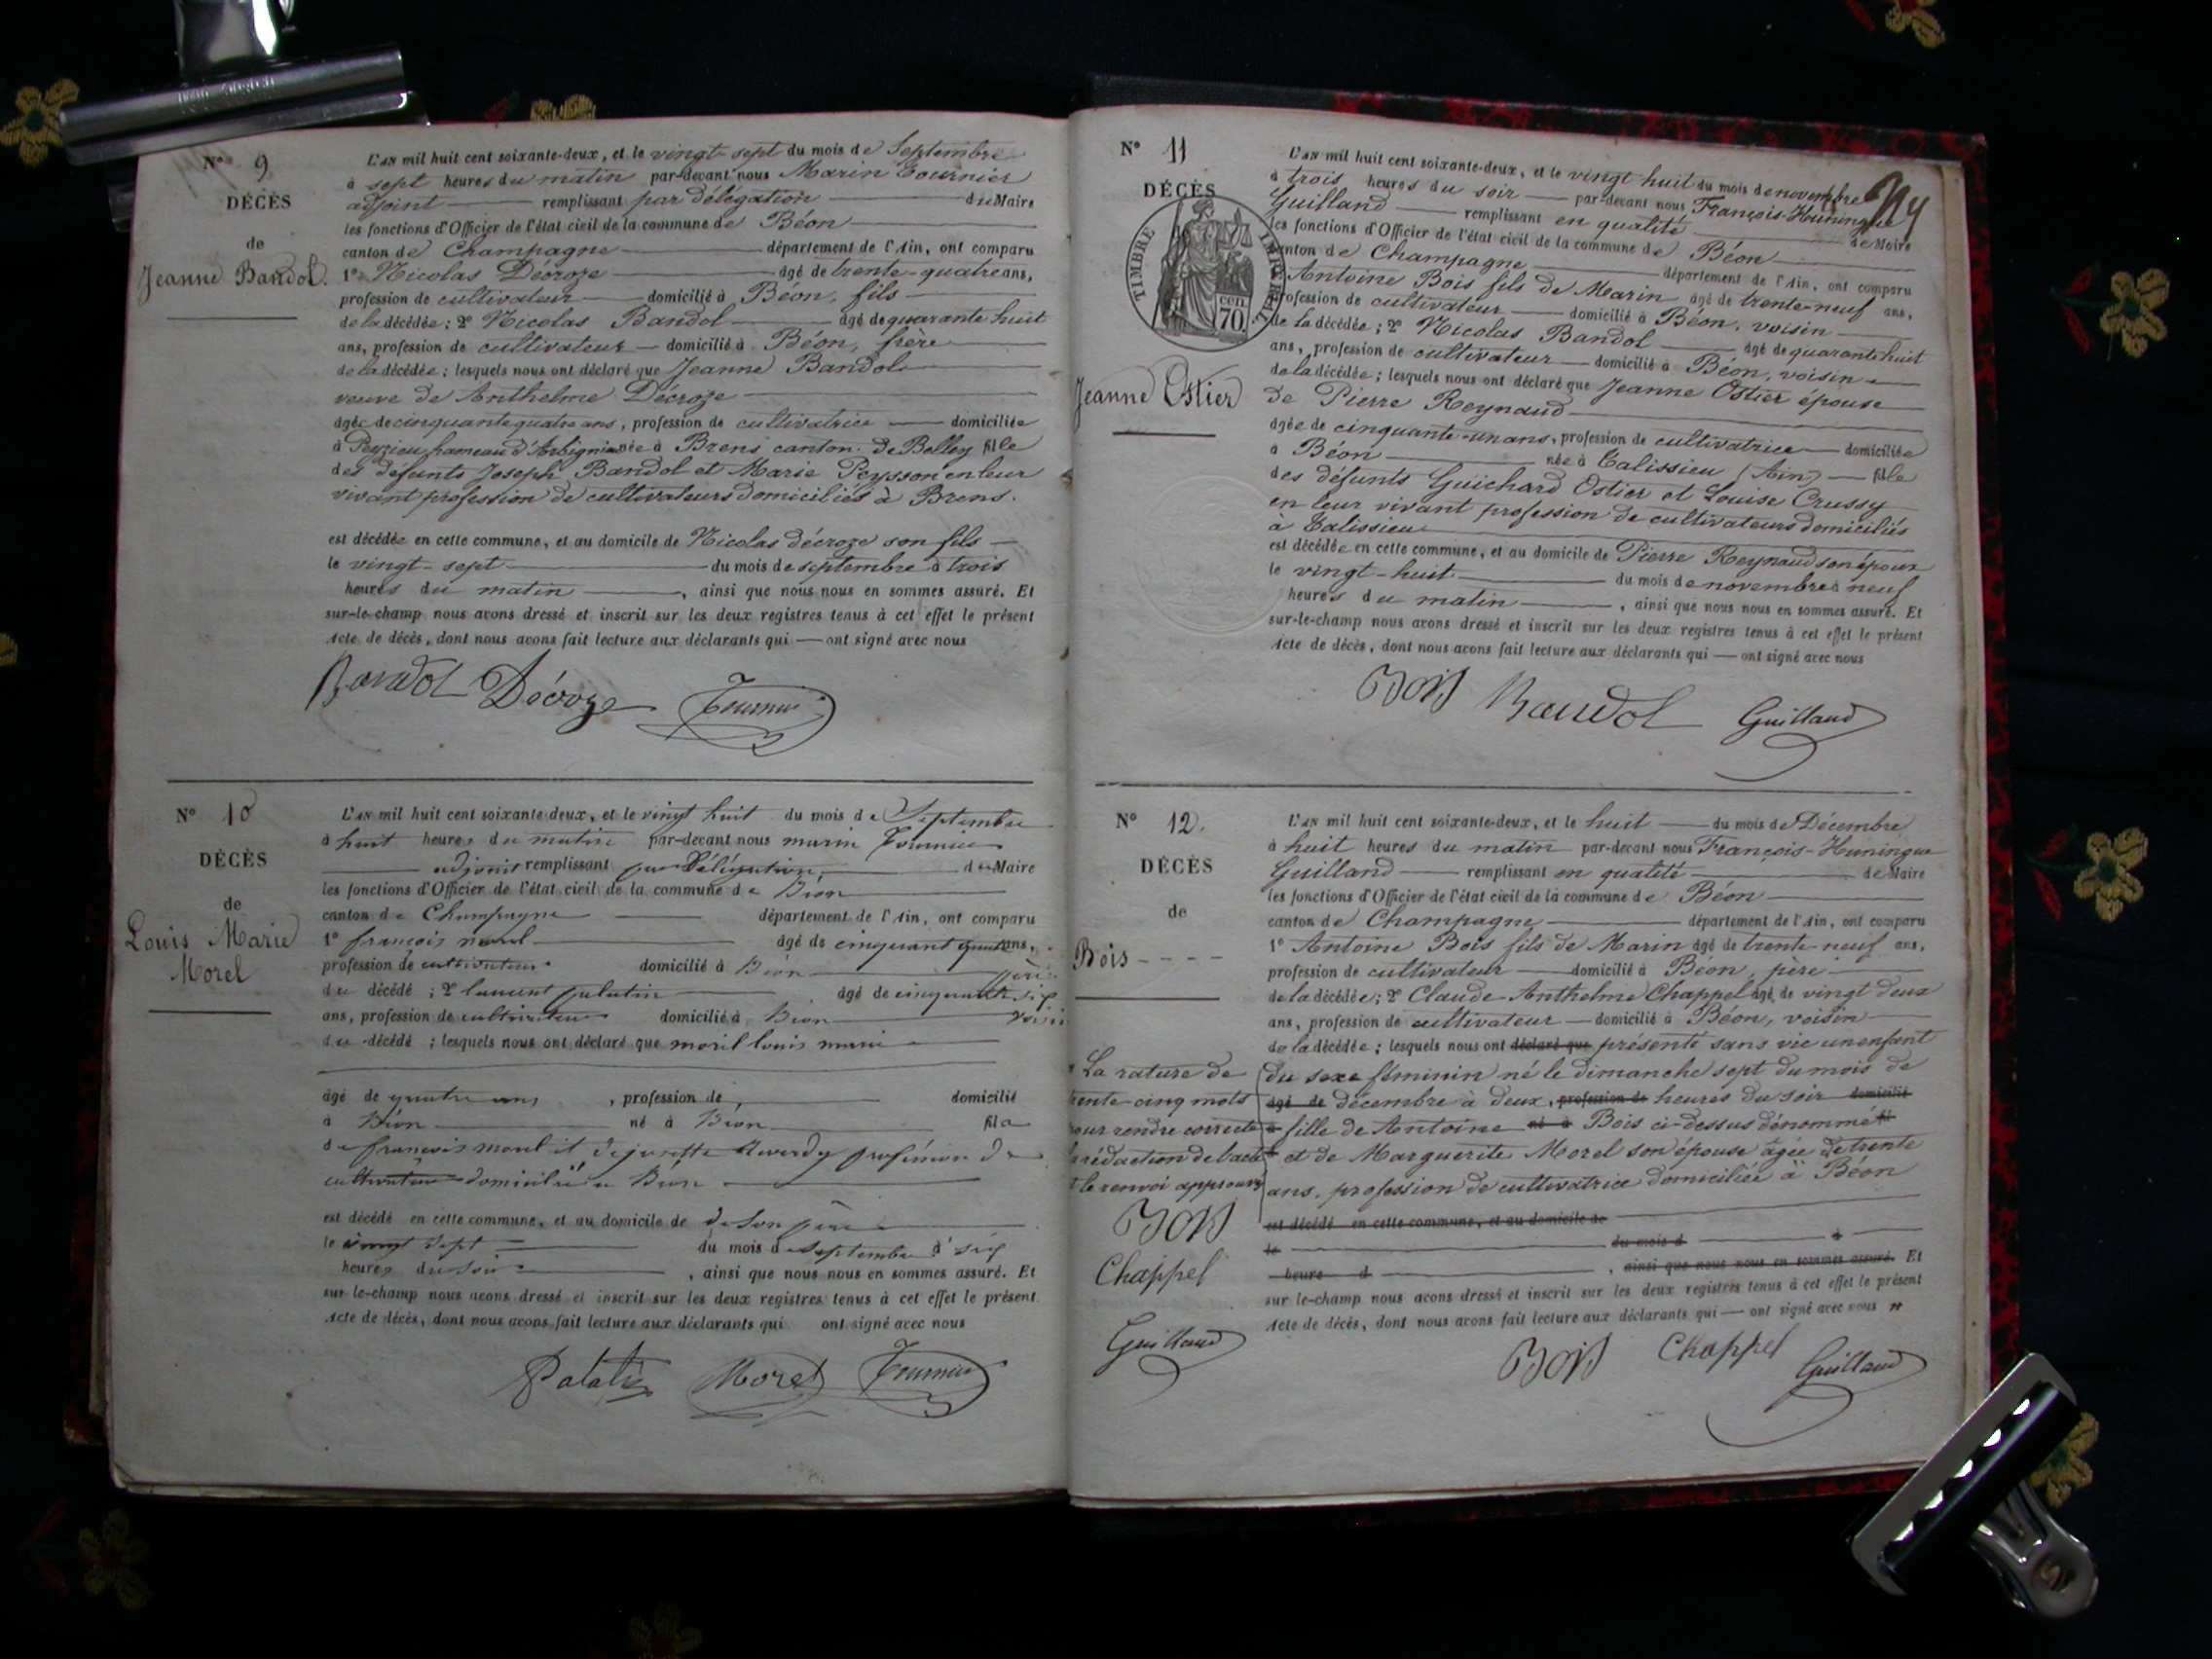 N° 9
DÉCÈS
de
Jeanne Bandol.
L'AN mil huit cent soixante-deux, et le vingt-sept du mois de Septembre
à sept heures du matin par-devant nous Marin Tournier
adjoint remplissant par délégation du Maire
les fonctions d'Officier de l'état civil de la commune de Béon
canton de Champagne département de l'Ain, ont comparu
1° Nicolas Décroze âgé de trente-quatre ans,
profession de cultivateur domicilié à Béon, fils
de la décédée; 2° Nicolas Bandol âgé de quarante huit
ans, profession de cultivateur domicilié à Béon, frère
de la décédée; lesquels nous ont déclaré que Jeanne Bandol
veuve de Anthelme Décroze
âgée de cinquante quatre ans, profession de cultivatrice domiciliée
à Peyzieu hameau d'Arbignieu née à Brens canton de Belley fille
des défunts Joseph Bandol et Marie Peysson en leur
vivant profession de cultivateurs domiciliés à Brens.
est décédée en cette commune, et au domicile de Nicolas décroze son fils
le vingt-sept du mois de septembre à trois
heures du matin, ainsi que nous nous en sommes assuré. Et
sur-le-champ nous avons dressé et inscrit sur les deux registres tenus à cet effet le présent
Acte de décès, dont nous avons fait lecture aux déclarants qui ont signé avec nous
Bandol Décroze Tournier
N° 10
DÉCÈS
de
Louis Marie
Morel
L'AN mil huit cent soixante-deux, et le vingt huit du mois de Septembre
à huit heures du matin par-devant nous marin Tournier
adjoint remplissant par Délégation, du Maire
les fonctions d'Officier de l'état civil de la commune de Béon
canton de Champagne département de l'Ain, ont comparu
1° françois morel âgé de cinquant ans,
profession de cultivateur domicilié à Béon père
du décédé; 2° laurent palatin âgé de cinquante six
ans, profession de cultivateur domicilié à Béon voisin
du décédé; lesquels nous ont déclaré que morel louis marie
âgé de quatre ans, profession de domicilié
à Béon né à Béon fils
de françois morel et de josette profession de
cultivateur domicilié à Béon
est décédé en cette commune, et au domicile de de son père
le vingt sept du mois de septembre à six
heures du soir, ainsi que nous nous en sommes assuré. Et
sur-le-champ nous avons dressé et inscrit sur les deux registres tenus à cet effet le présent
Acte de décès, dont nous avons fait lecture aux déclarants qui ont signé avec nous
Palatin Morel Tournier
N° 11
DÉCÈS
TIMBRE IMPÉRIAL
cen. 70
Jeanne Ostier
L'AN mil huit cent soixante-deux, et le vingt huit du mois de novembre
à trois heures du soir par-devant nous François-Huningue
Guilland remplissant en qualité de Maire
les fonctions d'Officier de l'état civil de la commune de Béon
canton de Champagne département de l'Ain, ont comparu
Antoine Bois fils de Marin âgé de trente-neuf ans,
profession de cultivateur domicilié à Béon, voisin
de la décédée; 2° Nicolas Bandol âgé de quarante huit
ans, profession de cultivateur domicilié à Béon, voisin
de la décédée; lesquels nous ont déclaré que Jeanne Ostier épouse
de Pierre Reynaud
âgée de cinquante-un ans, profession de cultivatrice domiciliée
à Béon née à Talissieu (Ain) fille
des défunts Guichard Ostier et Louise Crussy
en leur vivant profession de cultivateurs domiciliés
à Talissieu
est décédée en cette commune, et au domicile de Pierre Reynaud son époux
le vingt-huit du mois de novembre à neuf
heures du matin, ainsi que nous nous en sommes assuré. Et
sur-le-champ nous avons dressé et inscrit sur les deux registres tenus à cet effet le présent
Acte de décès, dont nous avons fait lecture aux déclarants qui ont signé avec nous
Bois Bandol Guilland
N° 12.
DÉCÈS
de
Bois - - - -
L'AN mil huit cent soixante-deux, et le huit du mois de Décembre
à huit heures du matin par-devant nous François-Huningue
Guilland remplissant en qualité de Maire
les fonctions d'Officier de l'état civil de la commune de Béon
canton de Champagne département de l'Ain, ont comparu
1° Antoine Bois fils de Marin âgé de trente-neuf ans,
profession de cultivateur domicilié à Béon, père
de la décédée; 2° Claude-Anthelme Chappel âgé de vingt deux
ans, profession de cultivateur domicilié à Béon, voisin
de la décédée; lesquels nous ont déclaré que présenté sans vie un enfant
du sexe féminin né le dimanche sept du mois de
âgé de décembre à deux, profession de heures du soir domicilié
à fille de Antoine né à Bois ci-dessus dénommé fil
et de Marguerite Morel son épouse âgée de trente
ans, profession de cultivatrice domiciliée à Béon
est décédé en cette commune, et au domicile de
le du mois d à
heure d, ainsi que nous nous en sommes assuré. Et
sur-le-champ nous avons dressé et inscrit sur les deux registres tenus à cet effet le présent
Acte de décès, dont nous avons fait lecture aux déclarants qui ont signé avec nous
Bois Chappel Guilland
La rature de
trente-cinq mots
pour rendre correcte
la rédaction de l'acte
et le renvoi approuvés
Bois
Chappel
Guilland